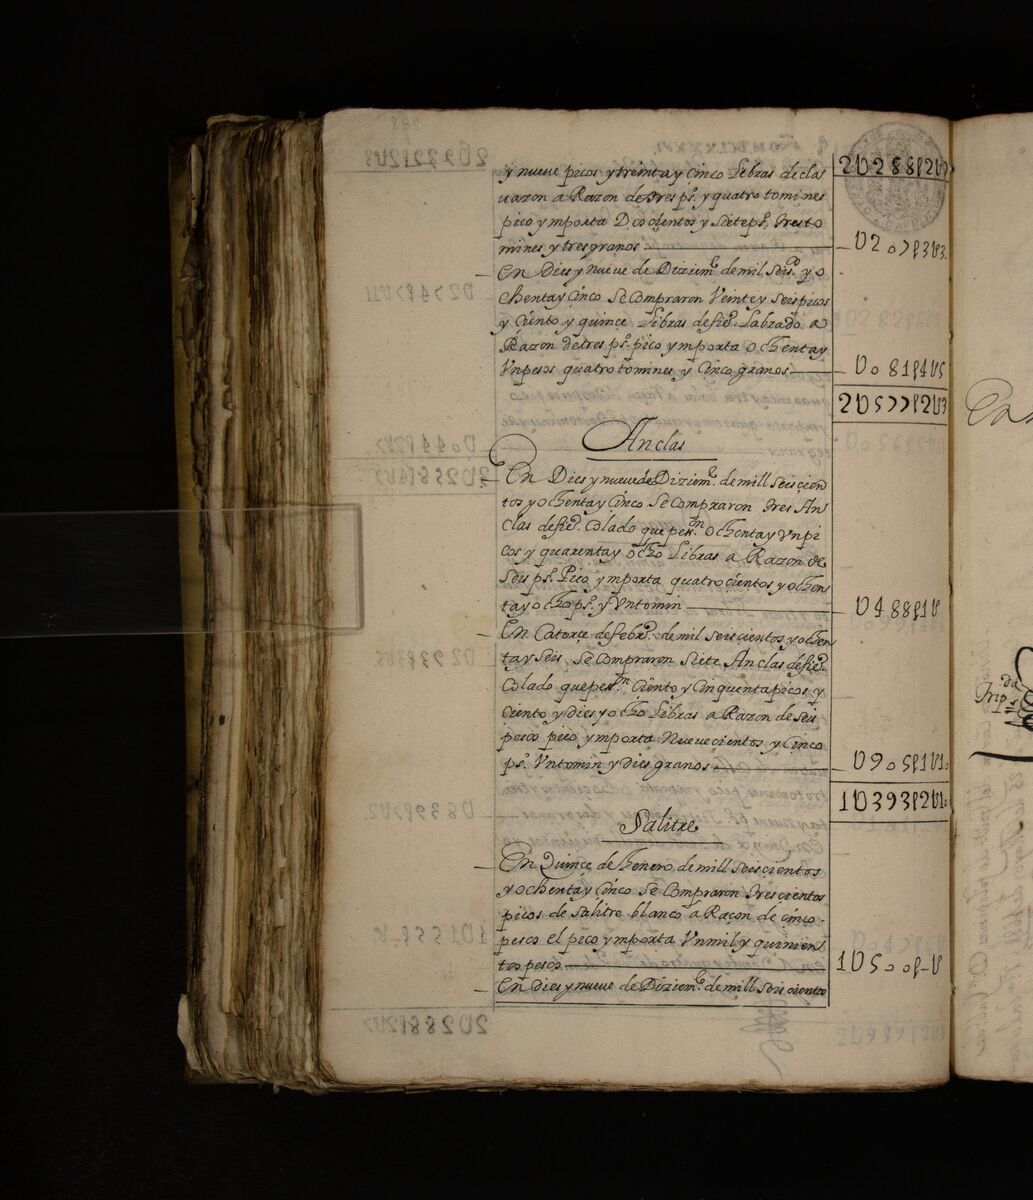 2U288p2U7
y nueve picos y treinta y cinco Libras de clas
uazon a Razon de tres ps. y quatro tomines
pico y mporta Docientos y siete ps. tres to
mines y tres granos — U207p3U3.
En Dies y nueve de Diziemge. de mil seiso. y o
chenta y cinco Se Compraron Veinte y seis picos
y Ciento y quince Libras de fieo. Labrado a
Razon de tres ps. pico y mporta ochenta y
Un pesos quatro tomines y Cinco granos — U081p4U5
2U577p2U3
Anclas
En Dies y nueve de Diziemge. de mill seiscien
tos y ochenta y Cinco Se Compraron tres An
clas de fieo. Colado que pesn. ochenta y Un pi
cos y quarenta y ocho Libras a Razon de
seis ps. Pico y mporta quatrocientos y ochen
ta y ocho ps. y Un tomin — U488p1U
En Catorce de febo. de mil seiscientos y ochen
ta y seis Se Compraron siete Anclas de fieo.
Colado que pesn. Ciento y Cinquenta picos y
Ciento y dies y ocho Libras a Razon de seis
pesos pico y mporta Nuevecientos y Cinco
ps. Un tomin y dies granos — U905p1U10
1U393p2U10
Salitre
En Quince de henero de mill seiscientos
y ochenta y Cinco Se Compraron trescientos
picos de Salitre blanco a Raçon de cinco
pesos el pico y mporta Un mil y quinien
tos pesos — 1U500p-U
En dies y nueve de Diziemge. de mill seiscientos